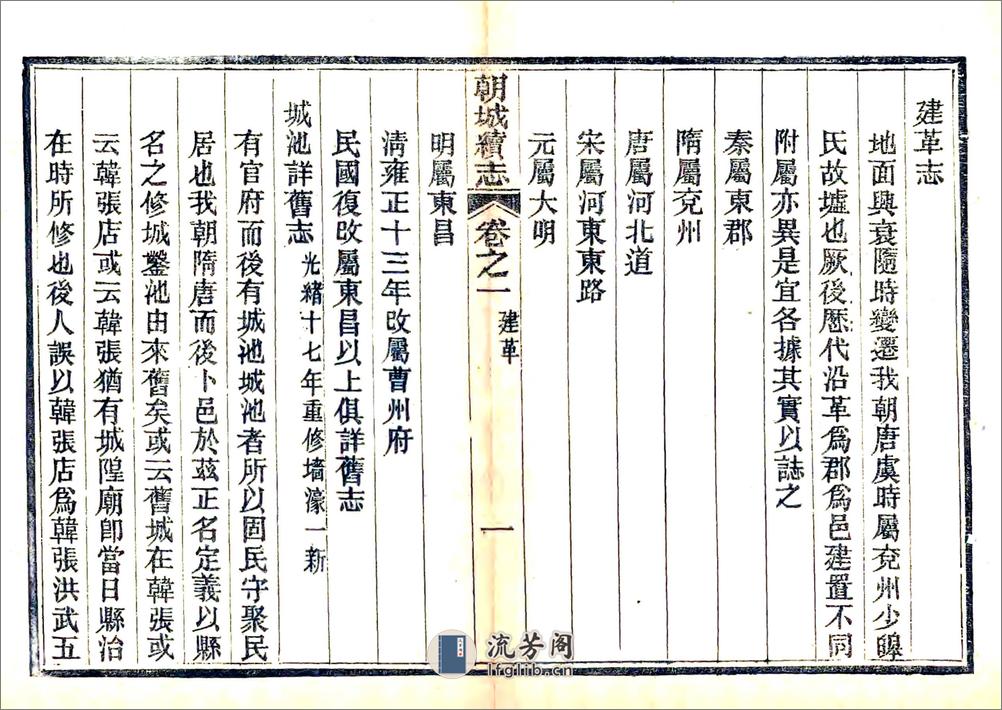 建革志
地面興衰隨時變遷我朝唐虞時屬兗州少皥
氏故墟也厥後歷代沿革爲郡爲邑建置不同
附屬亦異是宜各據其實以誌之
秦屬東郡
隋屬兗州
唐屬河北道
宋屬河東東路
元屬大明
朝城續志 卷之一 建革 一
明屬東昌
淸雍正十三年改屬曹州府
民國復改屬東昌以上俱詳舊志
城池詳舊志 光緒十七年重修墻濠一新
有官府而後有城池城池者所以固民守聚民
居也我朝隋唐而後卜邑於茲正名定義以縣
名之修城鑿池由來舊矣或云舊城在韓張或
云韓張店或云韓張猶有城隍廟卽當日縣治
在時所修也後人誤以韓張店爲韓張洪武五
流芳阁
lfglib.cn